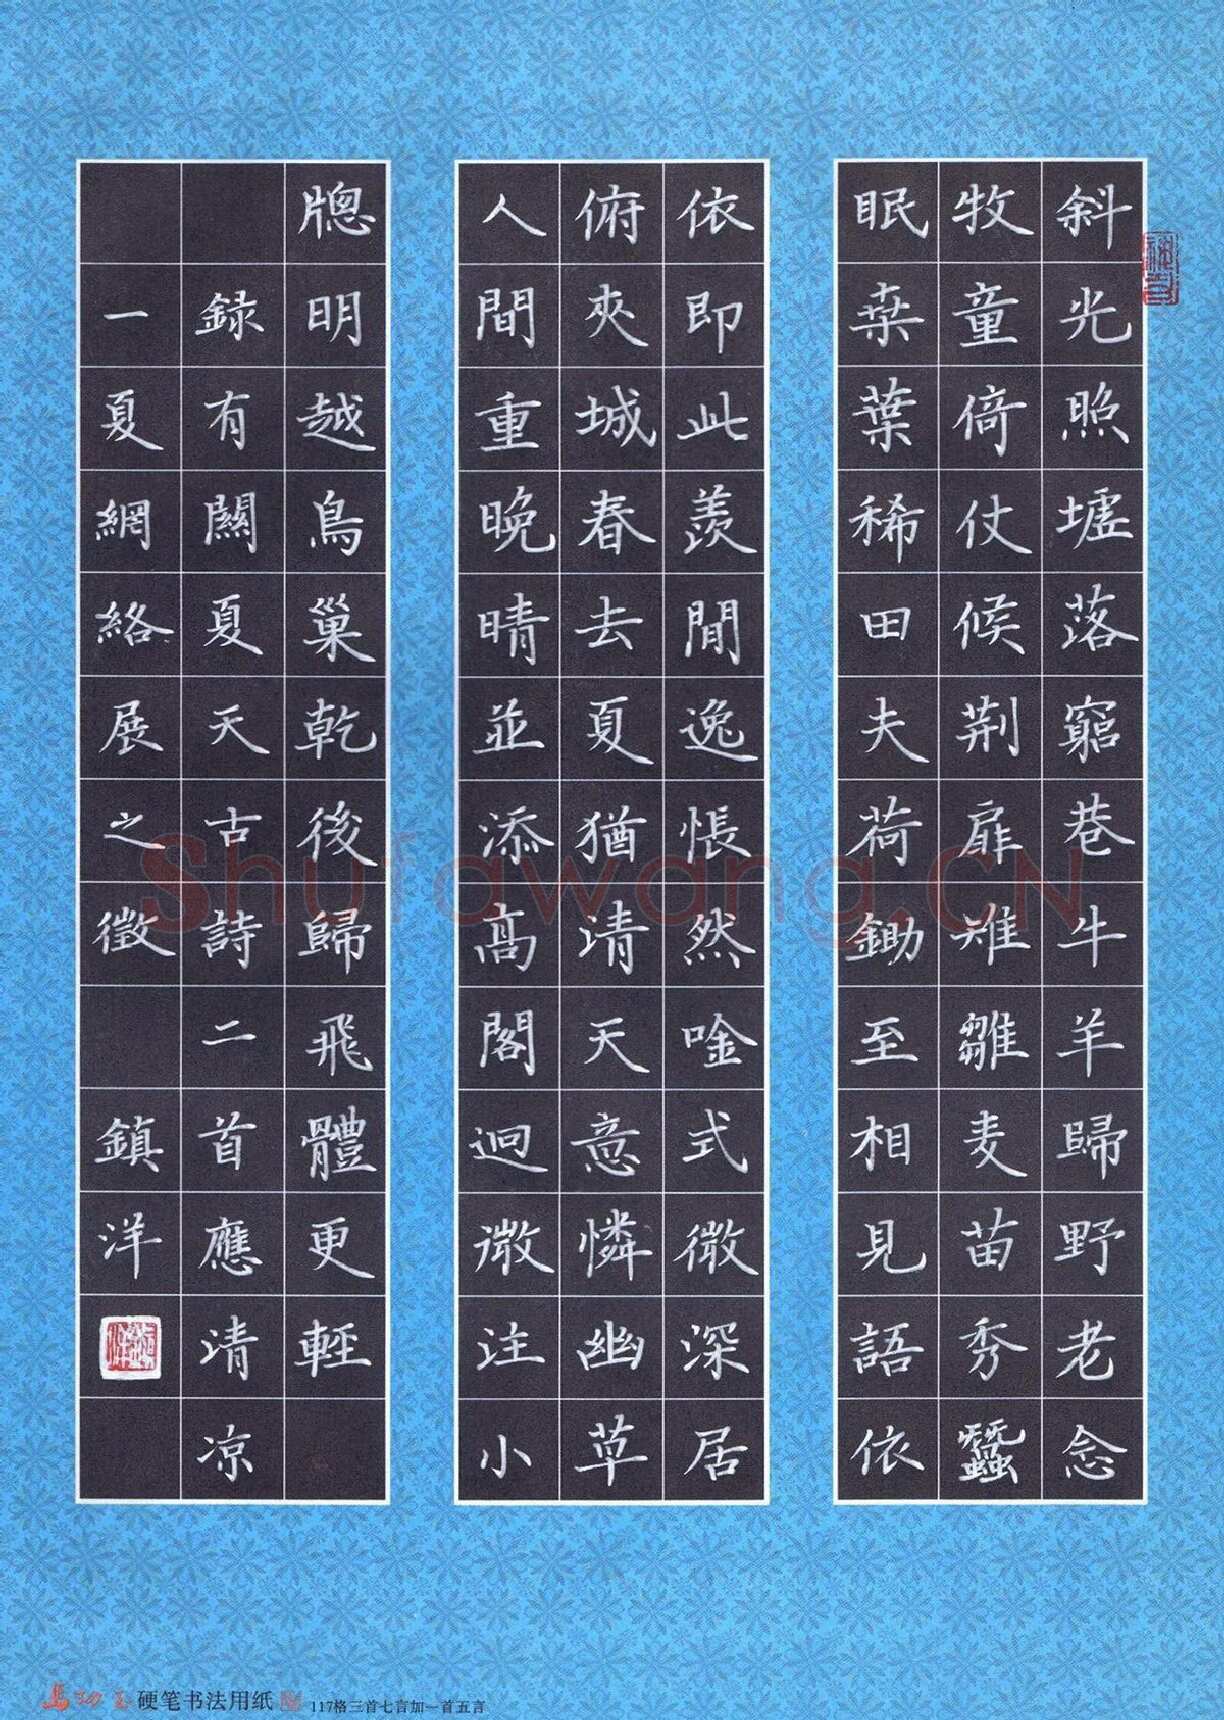 斜光照墟落窮巷牛羊歸野老念
牧童倚仗候荆扉雉雛麦苗秀蠶
眠桒葉稀田夫荷鋤至相見語依
依即此羨閒逸悵然唫式微深居
俯夾城春去夏猶清天意憐幽草
人間重晚晴並添高閣迥微注小
牕明越鳥巢乾後歸飛體更輕
録有關夏天古詩二首應清凉
一夏網絡展之徵 鎮洋
Shufawang.CN
硬笔书法用纸 117格三首七言加一首五言